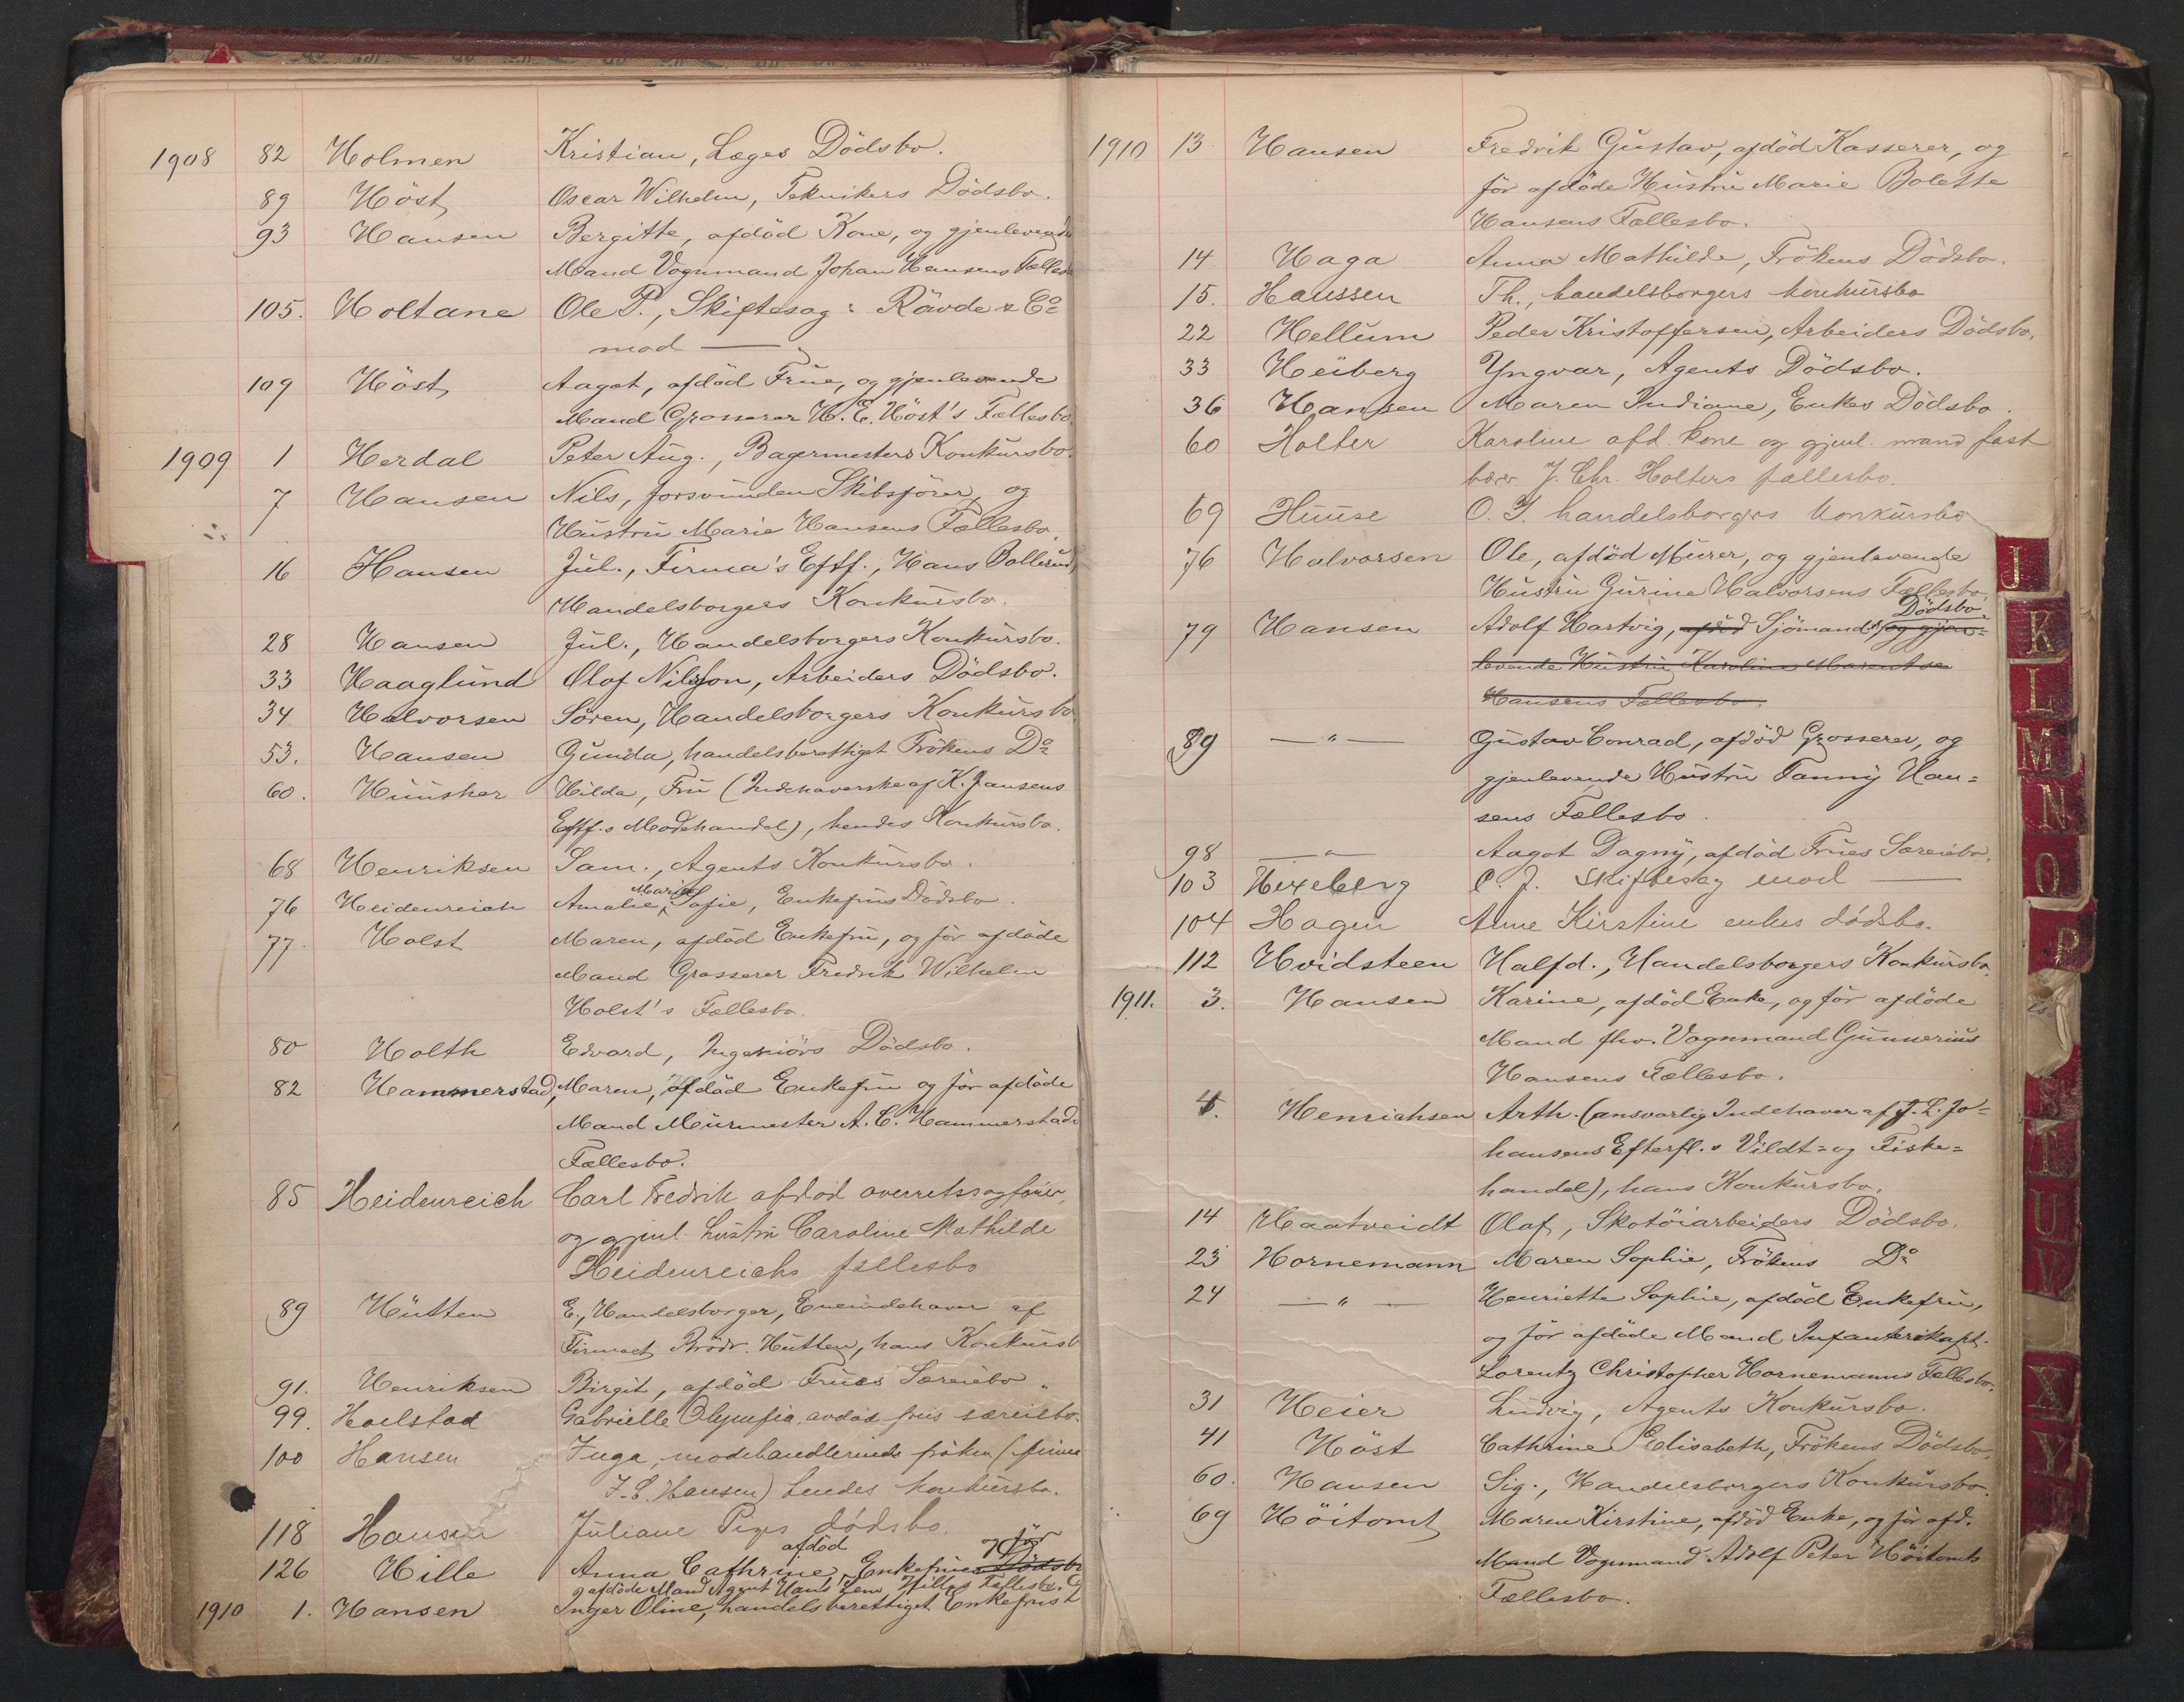 1908 82 Holmen Kristian, Læges Dödsbo.
89 Höst, Oscar Wilhelm, Teknikers Dödsbo.
93 Hansen Bergitte, afdöd Kone, og gjenlevende
Mand Vognmand Johan Hansens Fællesb
105. Holtane Ole P., Skiftesag: Rävde & Co
mod — "
109 Höst, Aagot, afdöd Frue, og gjenlevende
Mand Grosserer H. E. Höst's Fællesbo.
1909 1 Herdal Peter Aug., Bagermesters Konkursbo.
7 Hansen Nils, forsvunden Skibsförer, og
Hustru Marie Hansens Fællesbo.
16 Hansen Jul., Firma's Eftf., Hans Bollerud,
Handelsborgers Konkursbo.
28 Hansen Jul., Handelsborgers Konkursbo.
33 Haaglund Olof Nilsson, Arbeiders Dödsbo.
34 Halvorsen Sören, Handelsborgers Konkursbo
53. Hansen Gunda, handelsberettiget Frökens Do
60. Huusher Hilda, Fru (Indehaverske af K. Jansens
Eftf.s Modehandel), hendes Konkursbo.
68 Henriksen Sam., Agents Konkursbo.
76 Heidenreich Amalie Marie Sofie, Enkefrus Dödsbo.
77. Holst Maren, afdöd Enkefru, og för afdöde
Mand Grosserer Fredrik Wilhelm
Holst's Fællesbo.
80 Holth Edvard, Ingeniörs Dödsbo.
82 Hammerstad, Maren, afdöd Enkefru og för afdöde
Mand Murmester A. C. Hammerstads
Fællesbo.
85 Heidenreich Carl Fredrik afdöd overretssagförer,
og gjenl. hustru Caroline Mathilde
Heidenreichs fællesbo
89 Hütten E., Handelsborger, Eneindehaver af
Firmaet Brödr. Hütten, hans Konkursb
91. Henriksen Birgit, afdöd Frues Særeiebo
99. Hoelstad Gabrielle Olympia avdöd frus særeiebo.
100 Hansen Inga, modehandlerinde fröken (firma
J. C. Hansen) hendes konkursbo.
118 Hansen Juliane Piges dödsbo.
126 Hille Anna Cathrine, afdöd Enkefrues Dödsbo og för
afdöde Mand Agent Hans Hilles Fællesbo.
1910 1. Hansen Inger Oline, handelsberettiget Enkefrus
1910 13 Hansen Fredrik Gustav, afdöd Kasserer, og
för afdöde Hustru Marie Bolette
Hansens Fællesbo.
14 Haga Anna Mathilde, Frökens Dödsbo.
15. Haussen Th., handelsborgers konkursbo
22 Hellum Peder Kristoffersen, Arbeiders Dödsbo.
33 Heiberg Yngvar, Agents Dödsbo.
36 Hansen Maren Indiane, Enkes Dödsbo.
60 Holter Karoline afd. kone og gjenl. mand fast
bærer J. Chr. Holters fællesbo.
69 Huuse O. I. handelsborgers konkursbo
76 Halvorsen Ole, afdöd Murer, og gjenlevende
Hustru Gurine Halvorsens Fællesbo.
79 Hansen Adolf Hartvig, afdöd Sjömands Dödsbo, og gjen=
levende Hustru Karoline Marentse
Hansens Fællesbo.
89 — " — Gustav Conrad, afdöd Grosserer, og
gjenlevende Hustru Fanny Han=
sens Fællesbo.
98 — " — Aagot Dagny, afdöd Frues Særeiebo.
103 Hexeberg C. J. Skiftesag mod —
104 Hagen Anne Kirstine enkes dödsbo.
112 Hvidsteen Halfd., Handelsborgers Konkursbo.
1911. 3. Hansen Karine, afdöd Enke, og för afdöde
Mand fhv. Vognmand Gunnerius
Hansens Fællesbo.
4. Henrichsen Arth. (ansvarlig Indehaver af J. L. Jo=
hansens Efterfl.s Vildt= og Fiske=
handel), hans Konkursbo.
14 Haatveidt Olaf, Skotöiarbeiders Dödsbo.
23 Hornemann Maren Sophie, Frökens Do
24 — " — Henriette Sophie, afdöd Enkefru,
og för afdöde Mand Infanterikapt.
Lorentz Christopher Hornemanns Fællesbo.
31 Heier Ludvig, Agents Konkursbo.
41 Höst Cathrine Elisabeth, Frökens Dödsbo.
60. Hansen Sig., Handelsborgers Konkursbo.
69 Höitomt Maren Kirstine, afdöd Enke, og för afd.
Mand Vognmand Adolf Peter Höitomts
Fællesbo.
J
K
L
M
N
O
P
S
T
U
V
X
Y